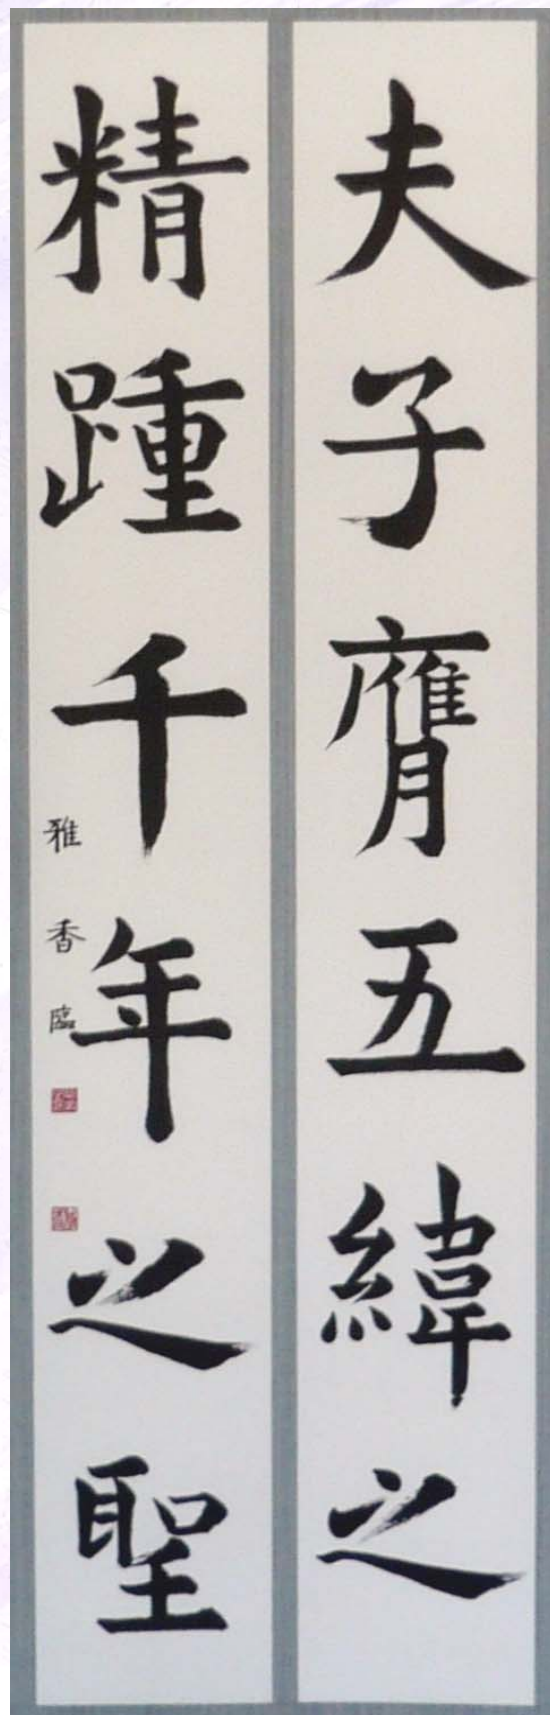 夫子膺五緯之
精踵千年之聖
雅香臨